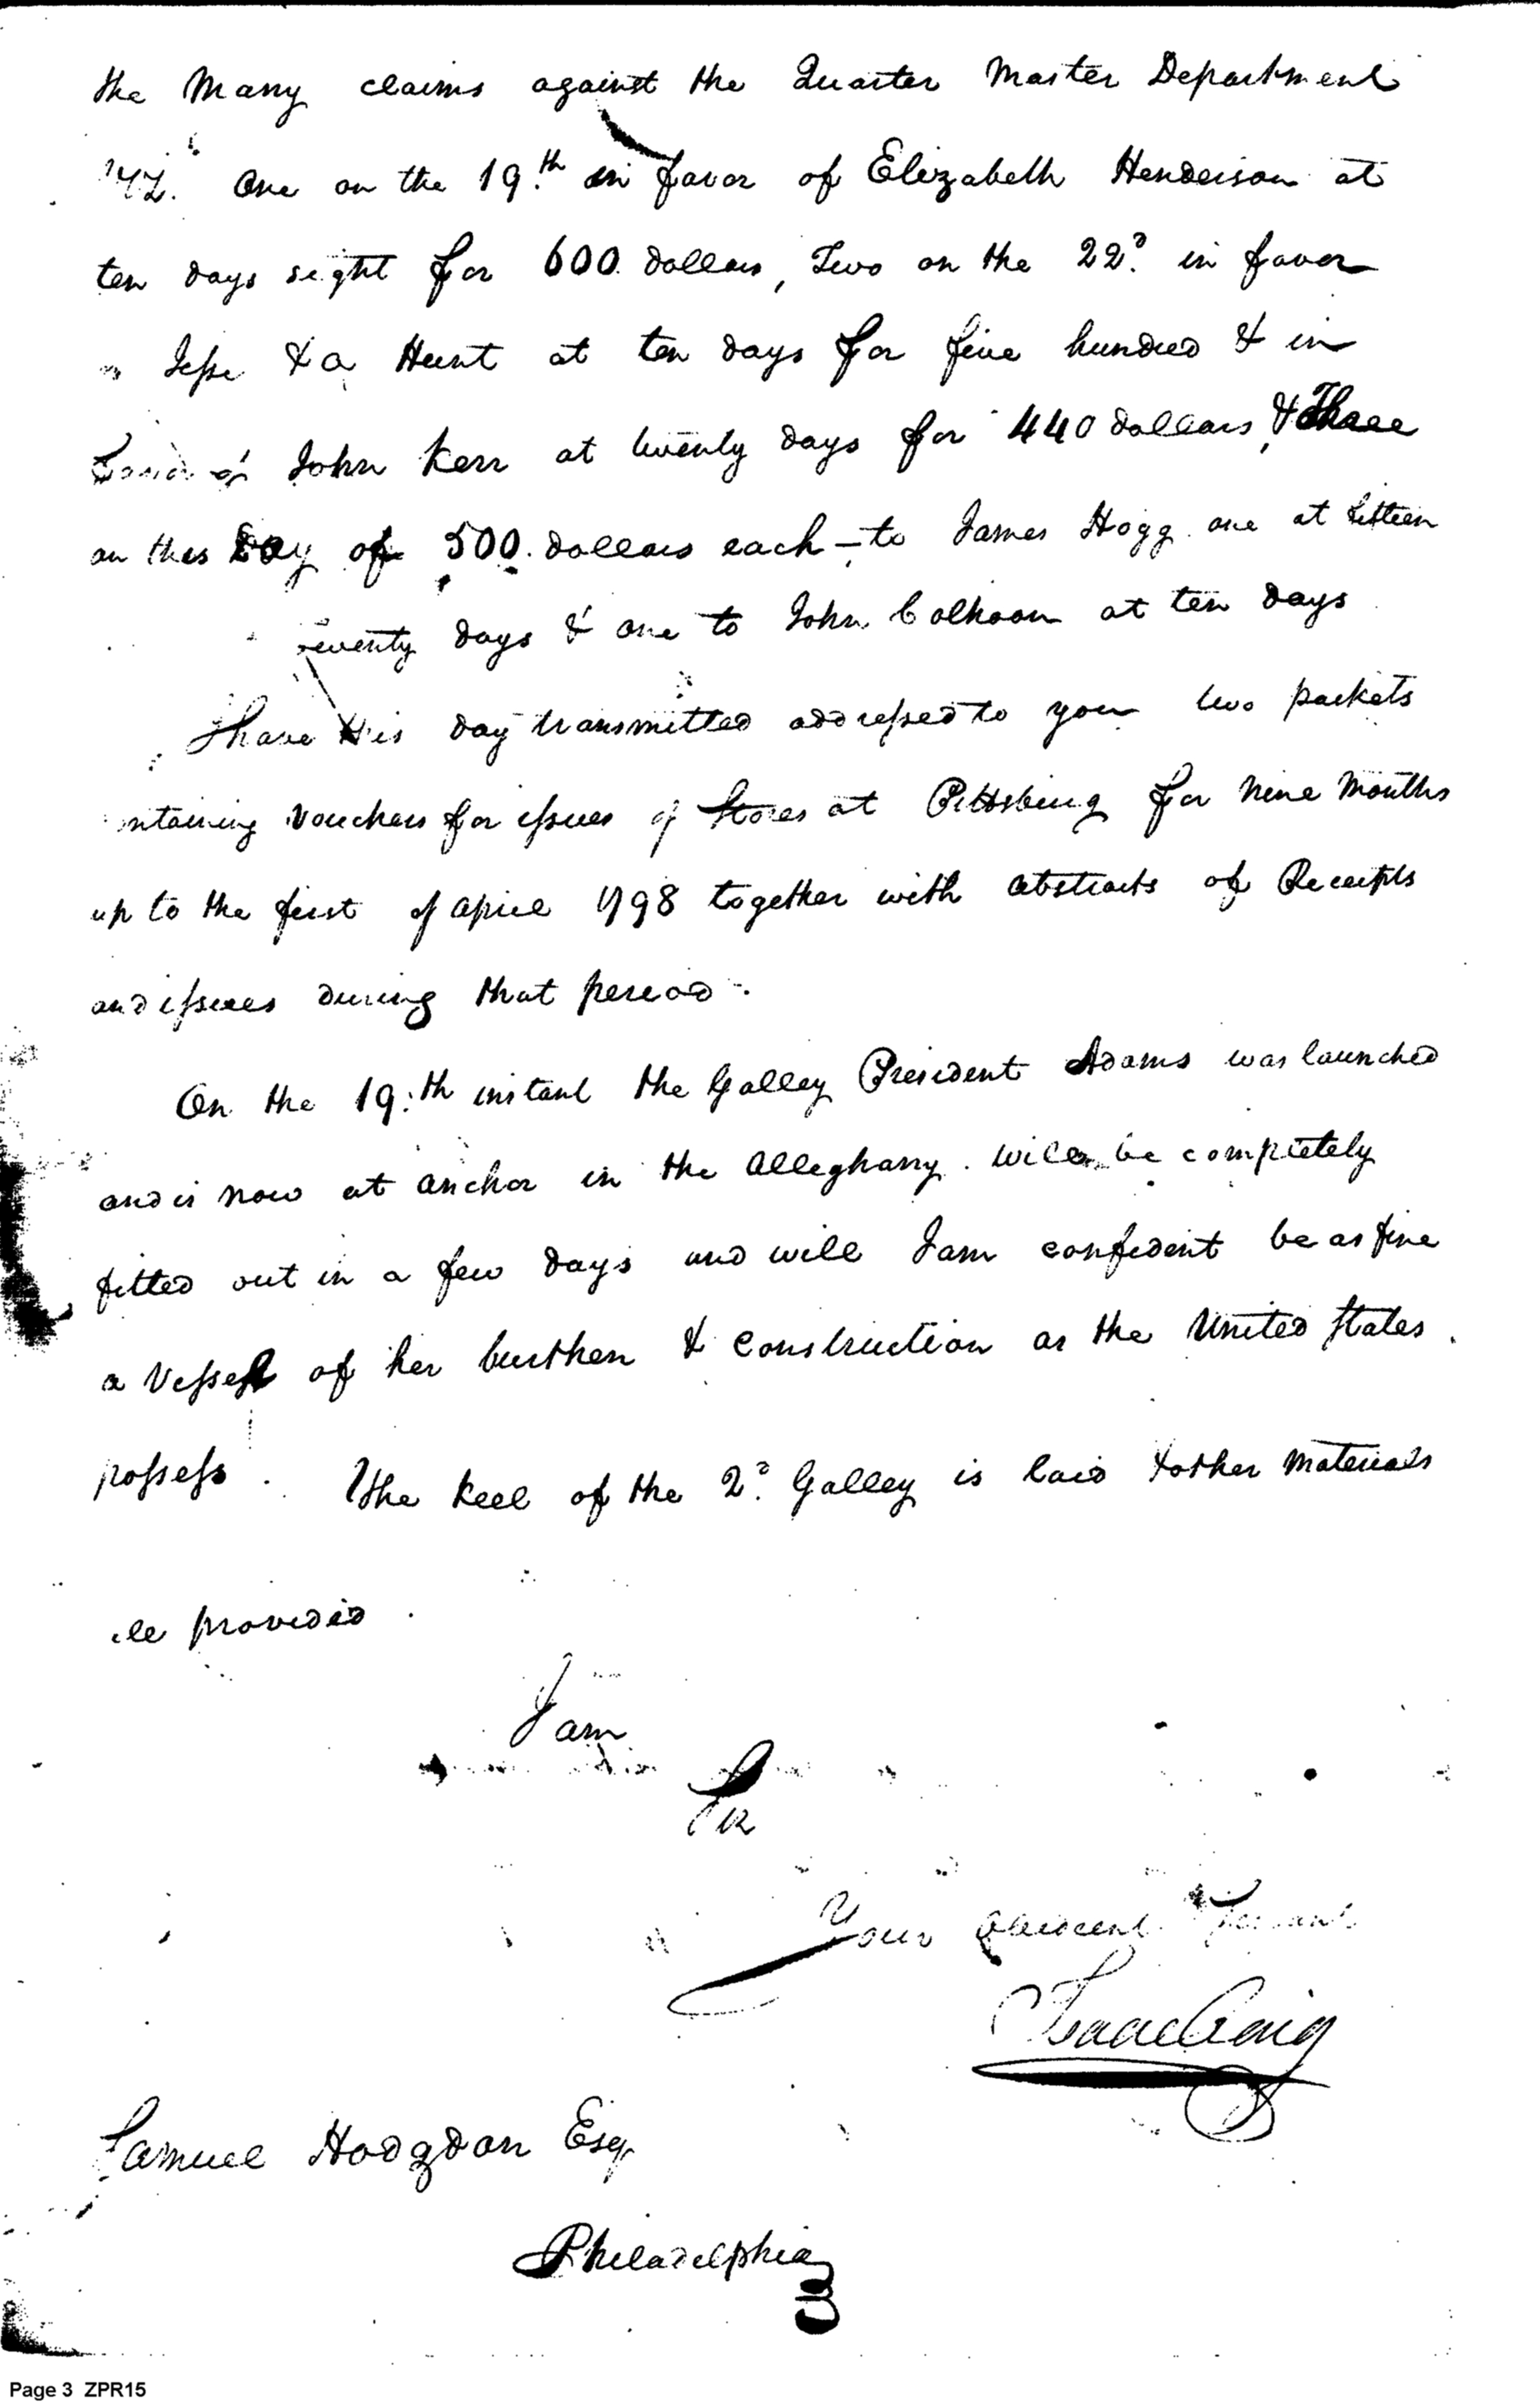 the Many claims against the Quarter Master Department
Viz. One on the 19.th in favor of Elizabeth Henderson at
ten days sight for 600 dollars, Two on the 22d. in favor
Jesse & a Hunt at ten days for five hundred & in
John Kerr at twenty days for 440 dollars, & Three
on this Day of 500. dollars each – to James Hogg one at
twenty days & one to John Calhoon at ten days
I have this day transmitted addressed to you two packets
ontaining Vouchers for issues of Stores at Pittsburg for Nine Months
up to the first of April 1798 together with abstracts of Receipts
and issues during that period.
On the 19.th instant the Galley President Adams was launched
and is now at anchor in the Alleghany. will be completely
fitted out in a few days and will I am confident be as fine
a Vessel of her burthen & Construction as the United States
possess. The keel of the 2d. Galley is laid & other Materials
provided.
I am
Sir
Your Obedient Servant
Isaac Craig
Samuel Hodgdon Esq
Philadelphia
Page 3 ZPR15